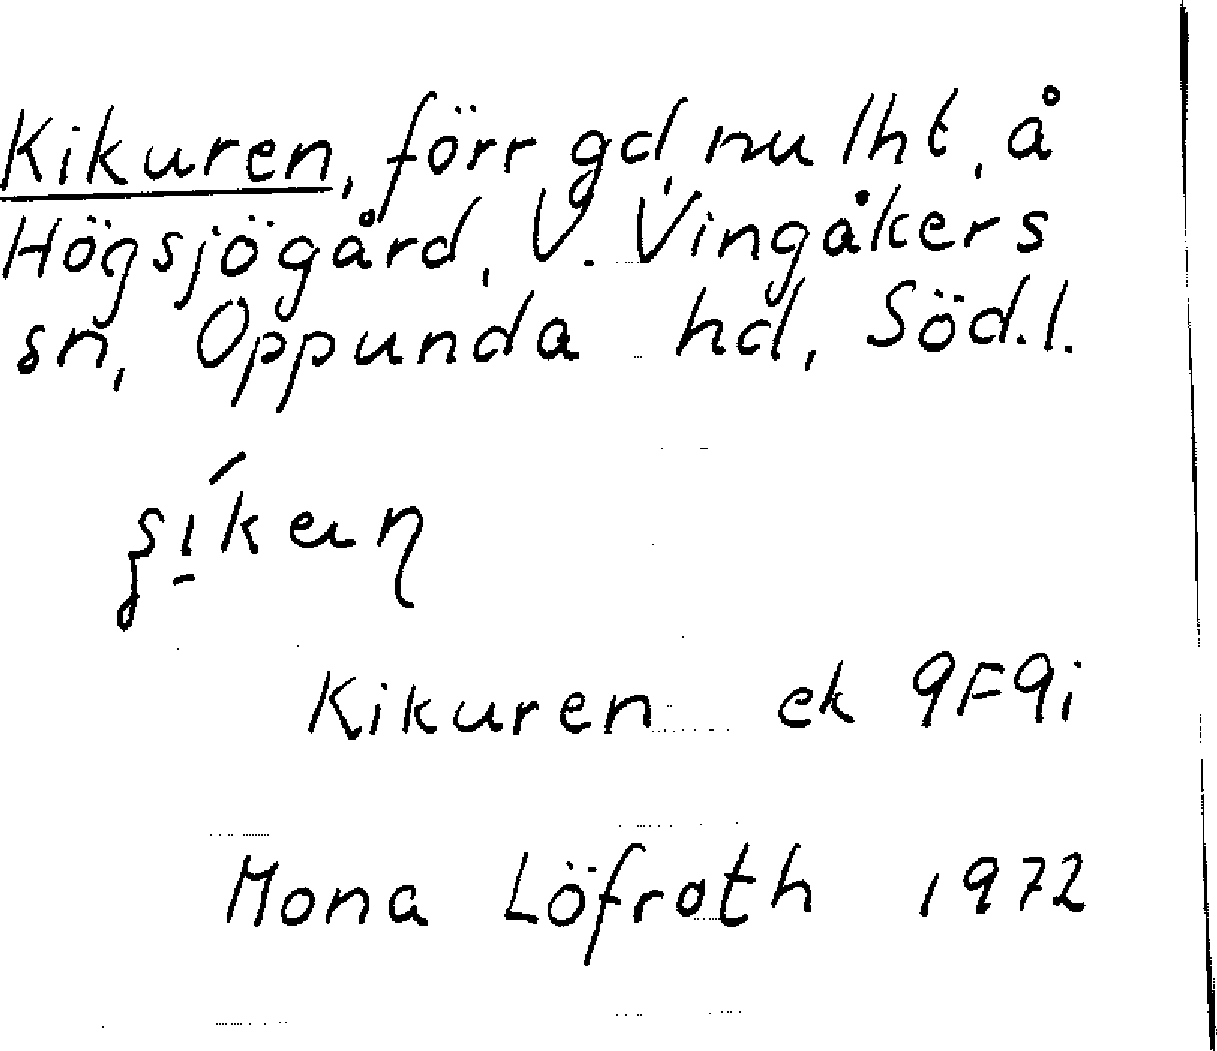 Kikuren, förr gd, nu lht, å
Högsjögård, V. Vingåkers
sn, Oppunda hd, Söd.l.
Kikuren ek 9F9i
Mona Löfroth 1972